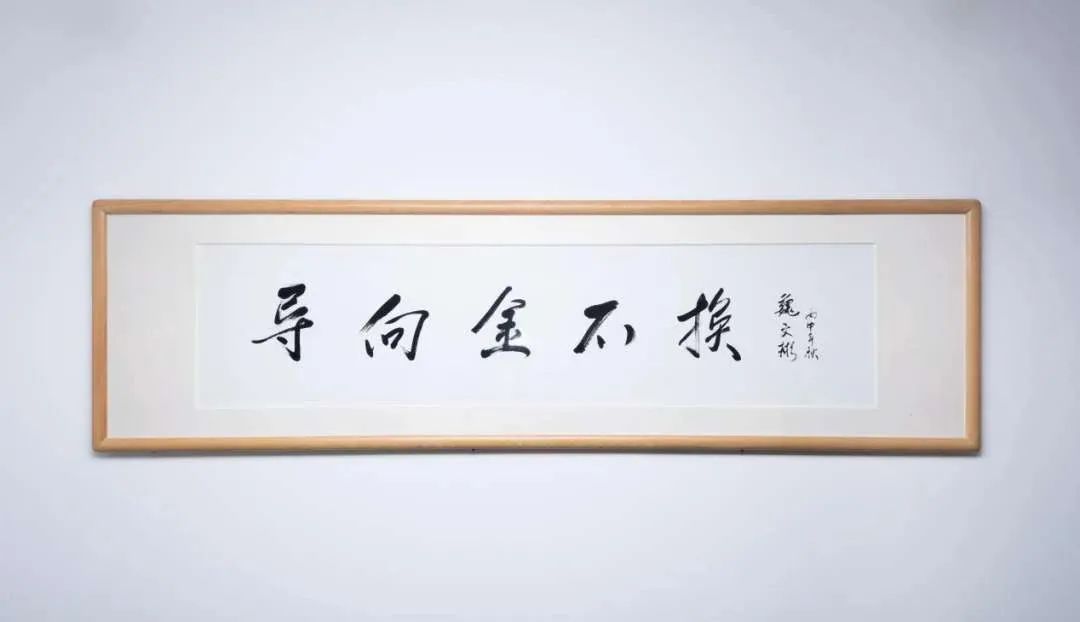 导向金不换
丙申年秋
魏文彬